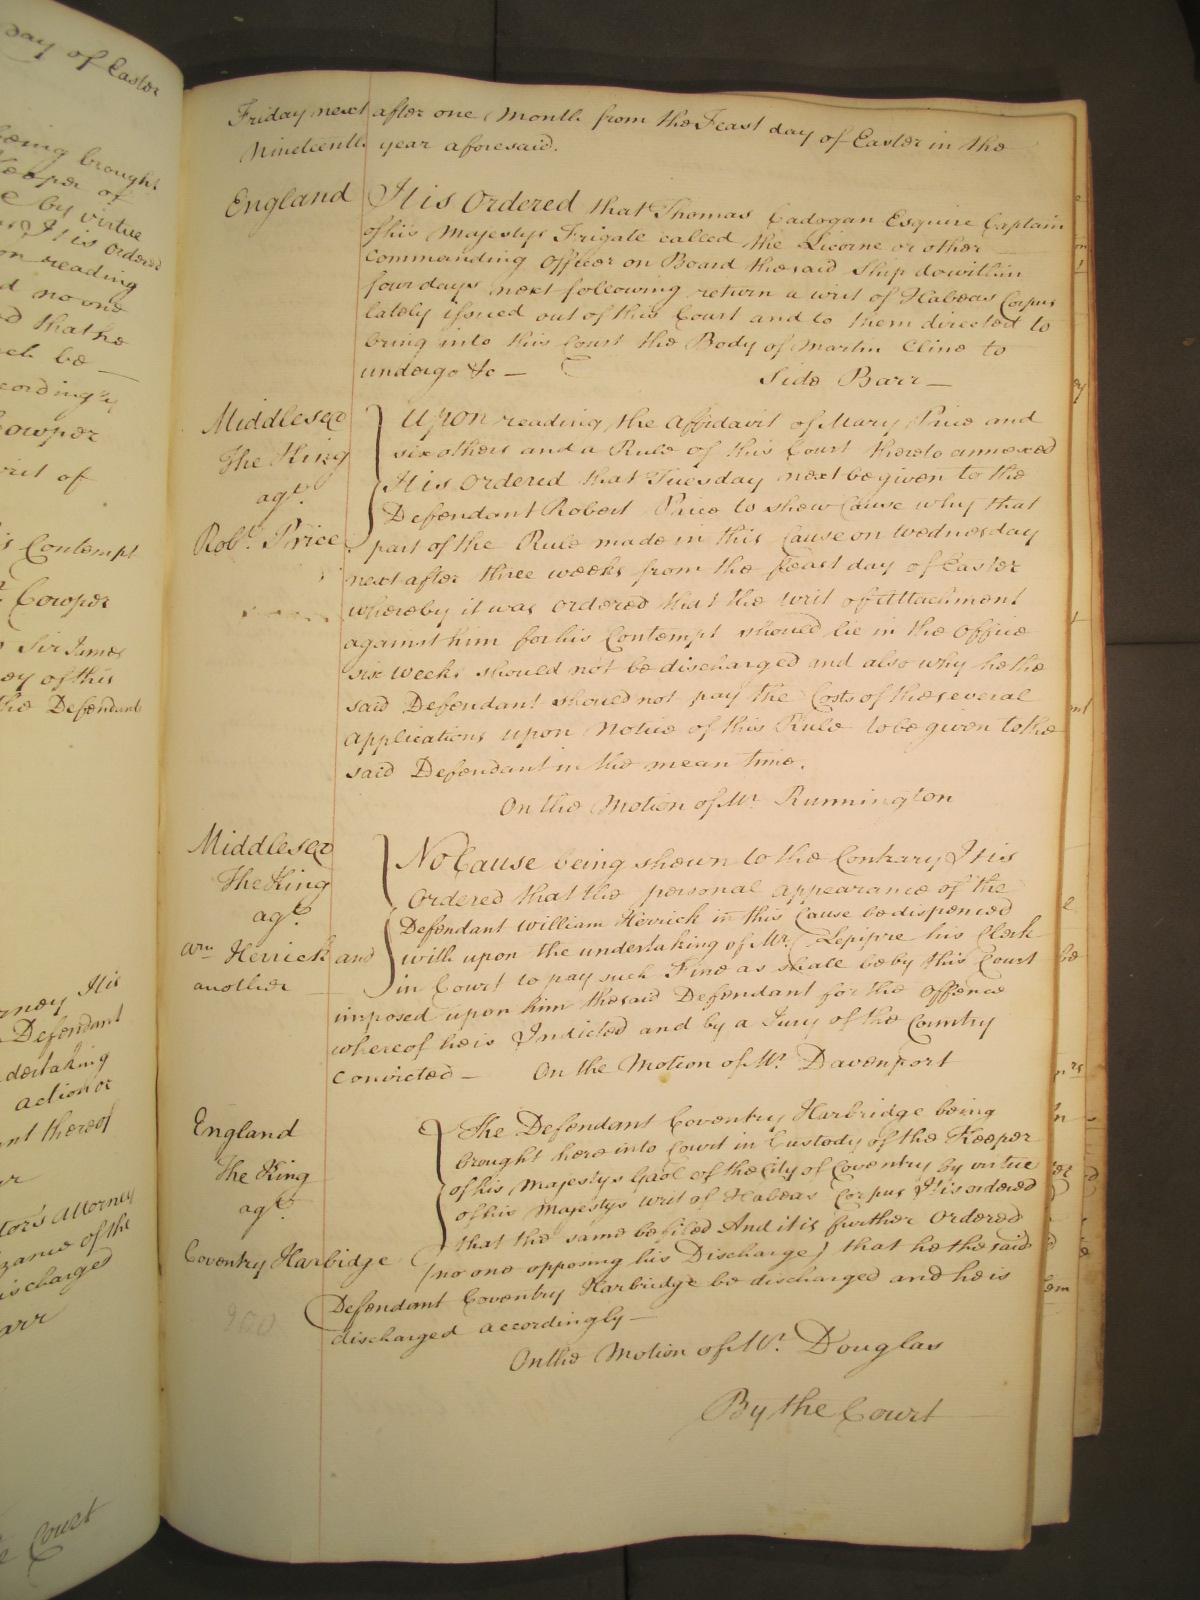 day of Easter
being brought
Keeper of
by virtue
It is Ordered
on reading
d no one
d that he
be —
cordingly
Cowper
writ of
Contempt
Cowper
Sir James
ey of this
the Defendant
rney It is
Defendant
dertaking
action or
nt thereof
tor's Attorney
zance of the
ischarged
arr
Court
Friday next after one Month from the Feast day of Easter in the
Nineteenth year aforesaid.
England It is Ordered that Thomas Cadogan Esquire Captain
of his Majestys Frigate called the Licorne or other
Commanding Officer on Board the said Ship do within
four days next following return a writ of Habeas Corpus
lately issued out of this Court and to them directed to
bring into this Court the Body of Martin Cline to
undergo &c —
Side Barr —
Middlesex Upon reading the Affidavit of Mary Price and
The King six others and a Rule of this Court thereto annexed
agt. It is Ordered that Tuesday next be given to the
Defendant Robert Price to shew Cause why that
Robt. Price part of the Rule made in this Cause on Wednesday
next after three weeks from the Feast day of Easter
whereby it was Ordered that the writ of Attachment
against him for his Contempt should lie in the Office
six weeks should not be discharged and also why he the
said Defendant should not pay the Costs of the several
applications upon Notice of this Rule to be given to the
said Defendant in the mean time.
On the Motion of Mr. Runnington
Middlesex No Cause being shewn to the Contrary It is
The King Ordered that the personal appearance of the
agt. Defendant William Herrick in this Cause be dispenced
Wm. Herrick and with upon the undertaking of Mr. Lepipre his Clerk
another in Court to pay such Fine as shall be by this Court
imposed upon him the said Defendant for the Offence
whereof he is Indicted and by a Jury of the Country
Convicted — On the Motion of Mr. Davenport
England The Defendant Coventry Harbridge being
brought here into Court in Custody of the Keeper
The King of his Majestys Gaol of the City of Coventry by virtue
agt. of his Majestys writ of Habeas Corpus It is ordered
that the same be filed And it is further Ordered
Coventry Harbidge (no one opposing his Discharge) that he the said
Defendant Coventry Harbridge be discharged and he is
discharged accordingly —
On the Motion of Mr. Douglas
By the Court